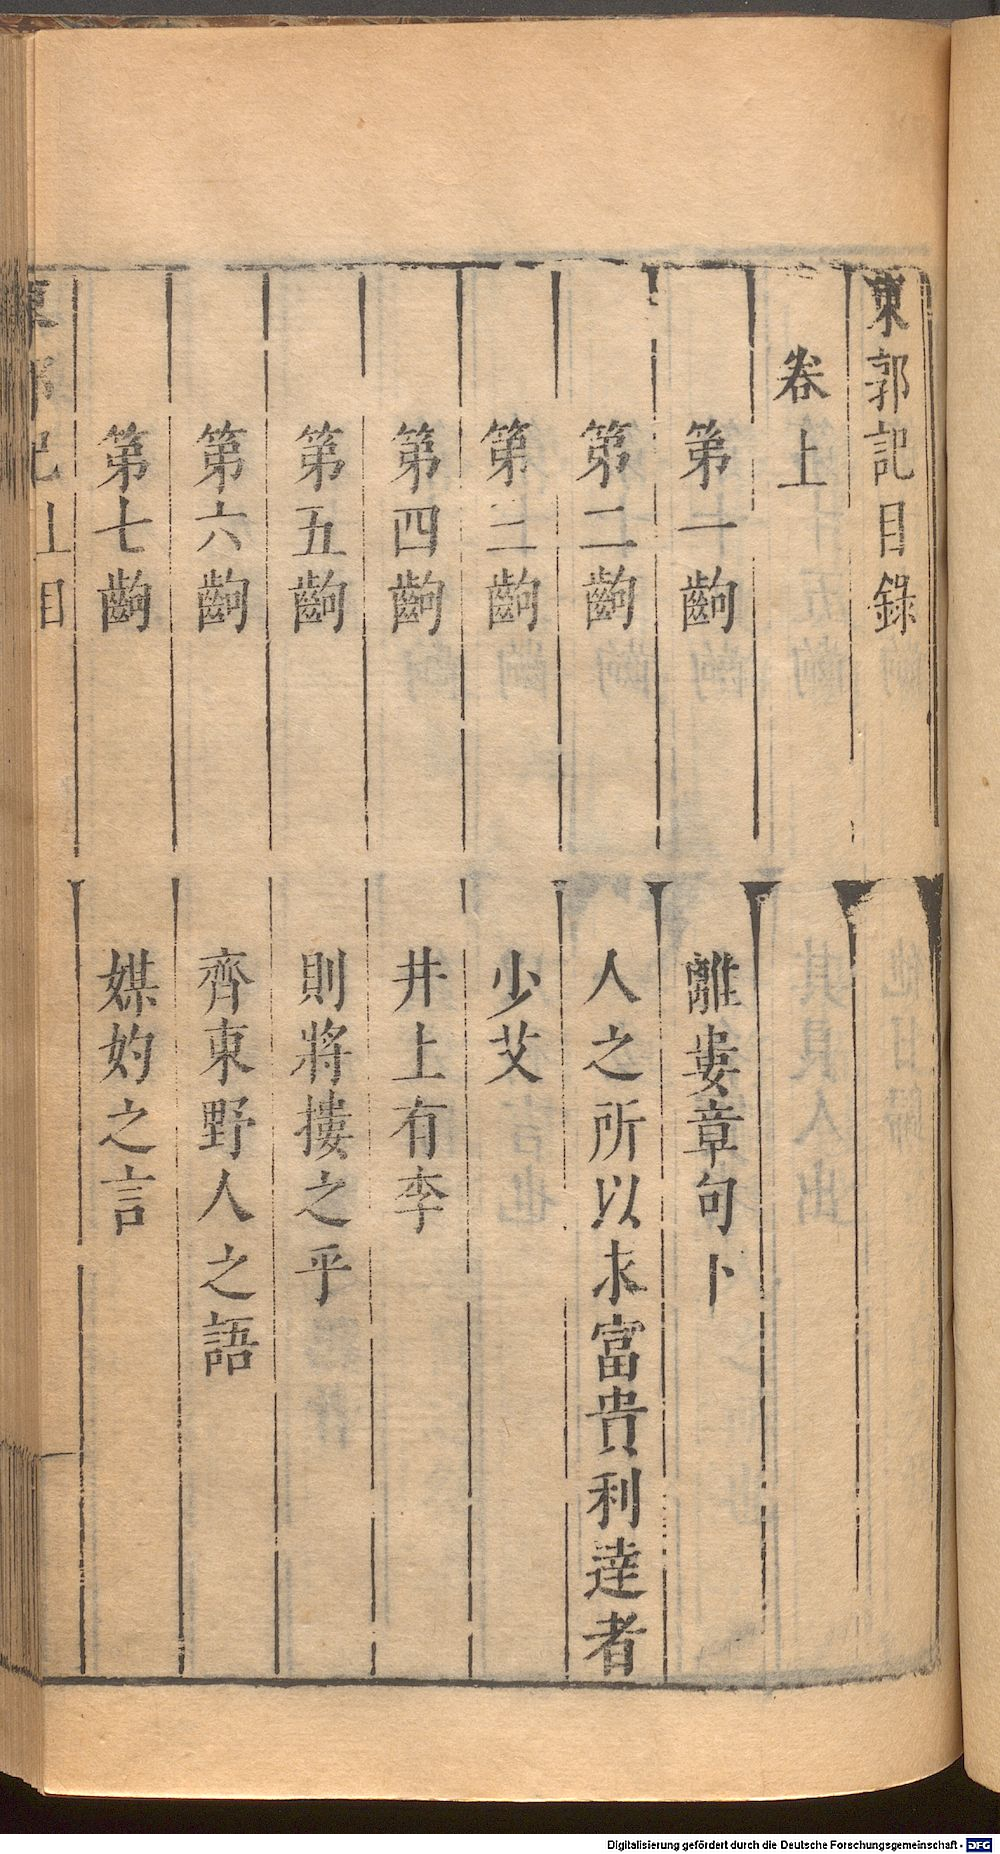 東郭記目錄
卷上
第一齣 離婁章句卜
第二齣 人之所以求富貴利達者
第三齣 少艾
第四齣 井上有李
第五齣 則將摟之乎
第六齣 齊東野人之語
第七齣 媒妁之言
東郭記 上目
Digitalisierung gefördert durch die Deutsche Forschungsgemeinschaft - DFG